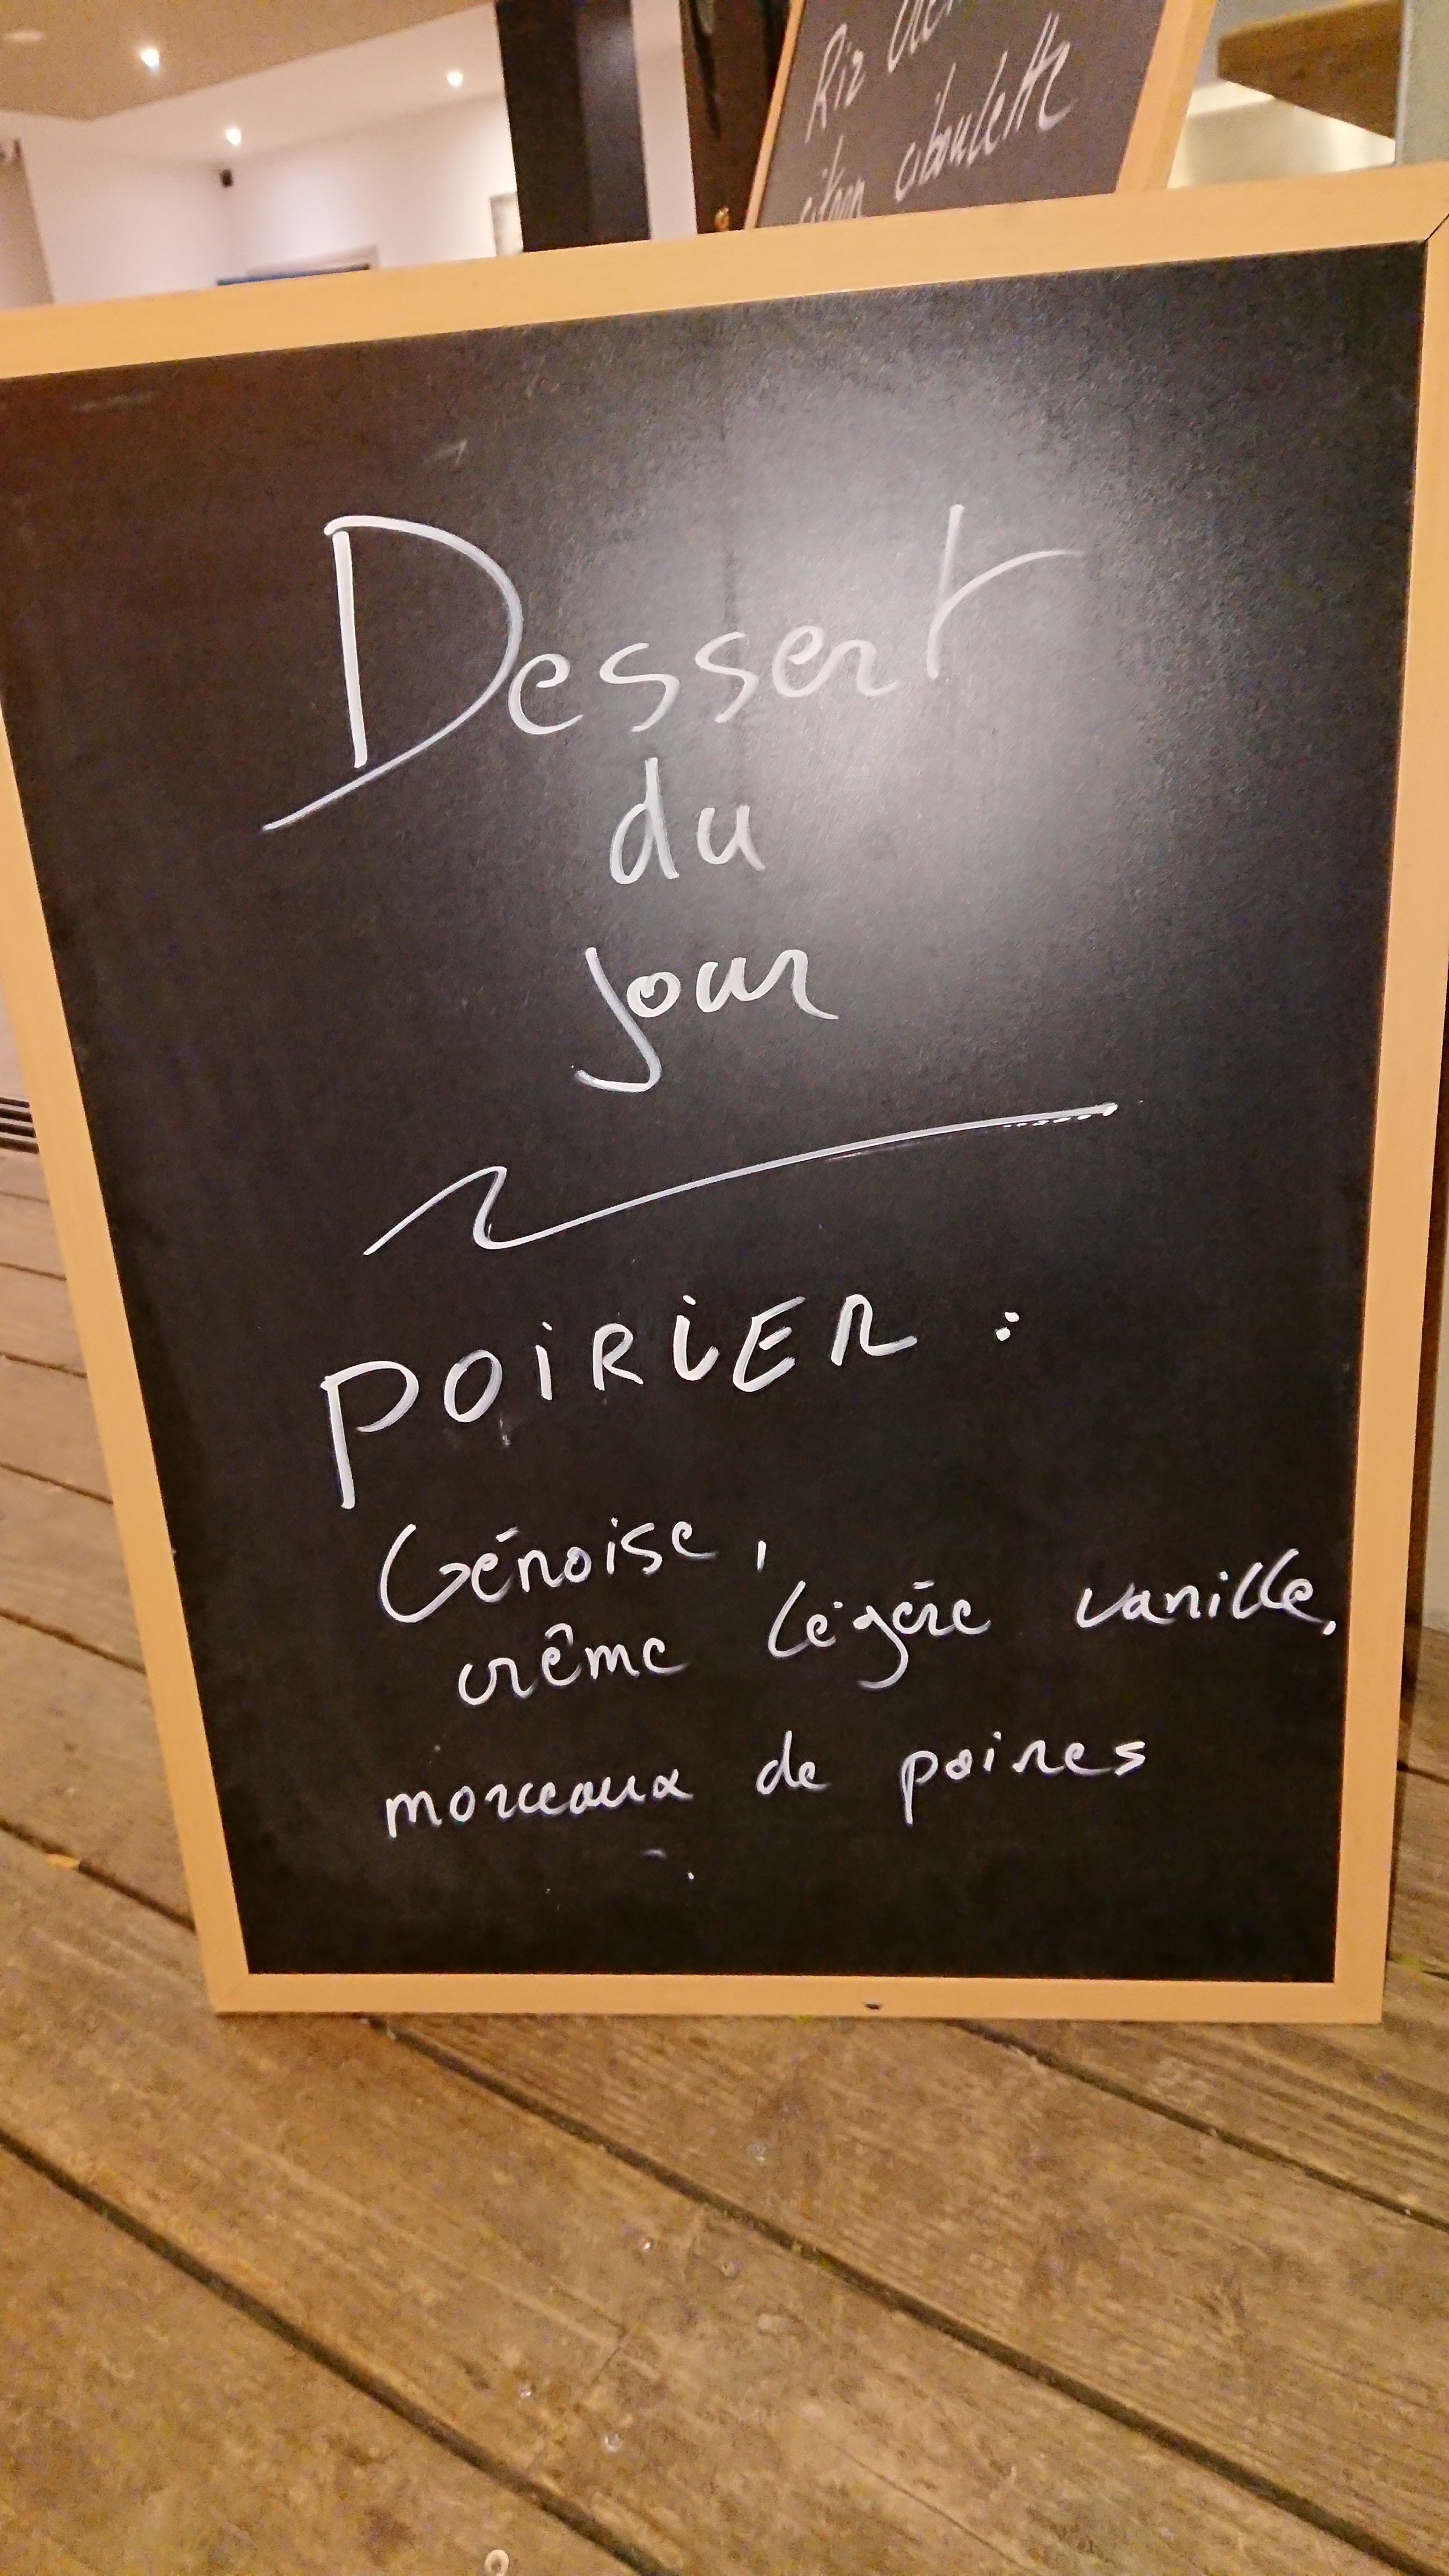 Riz
citron ciboulette
Dessert
du
jour
POIRIER :
Génoise,
crême légère vanille,
morceaux de poires